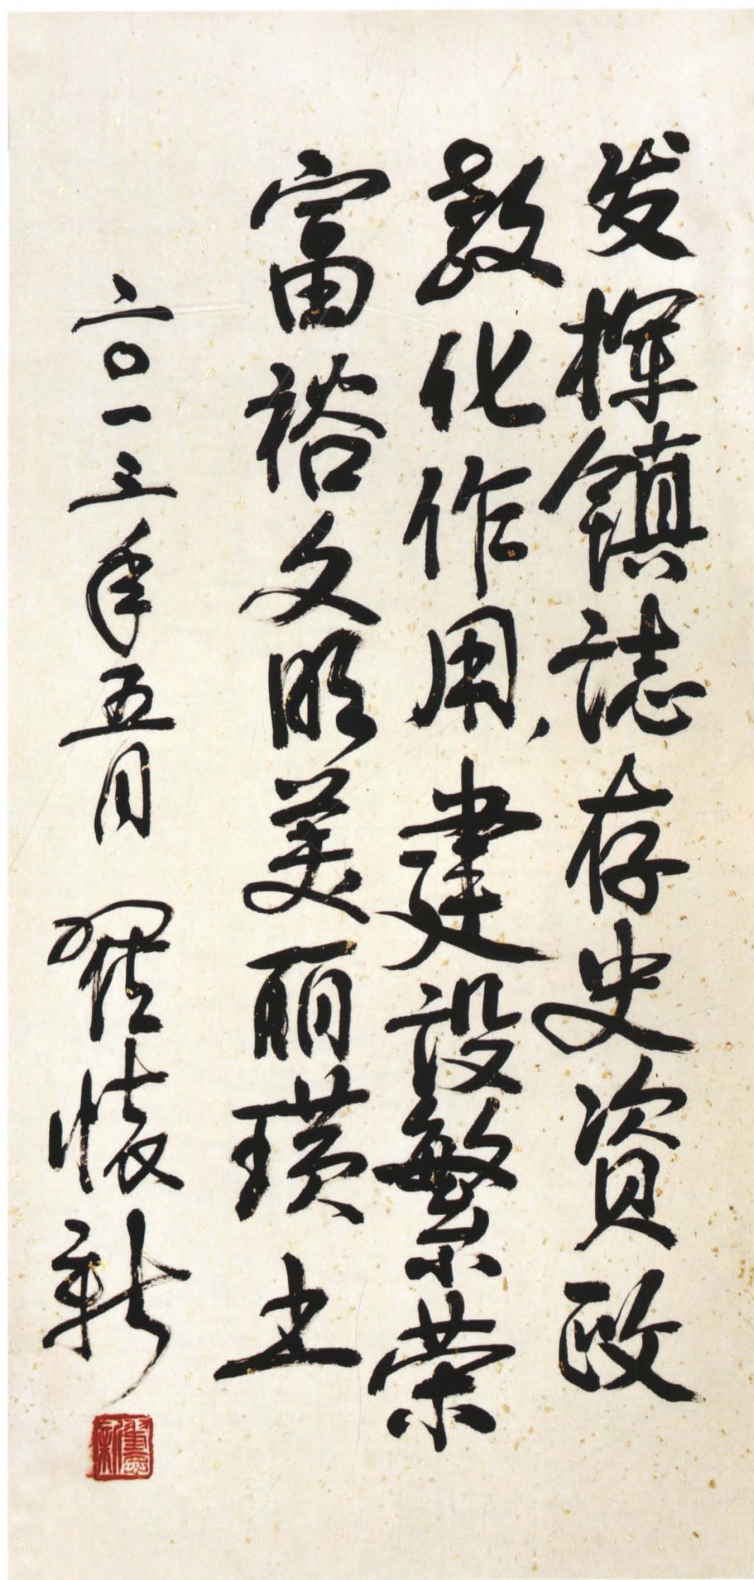 发挥镇誌存史资政
教化作用,建设繁荣
富裕文明美丽璜土
二〇一三年五月 翟怀新